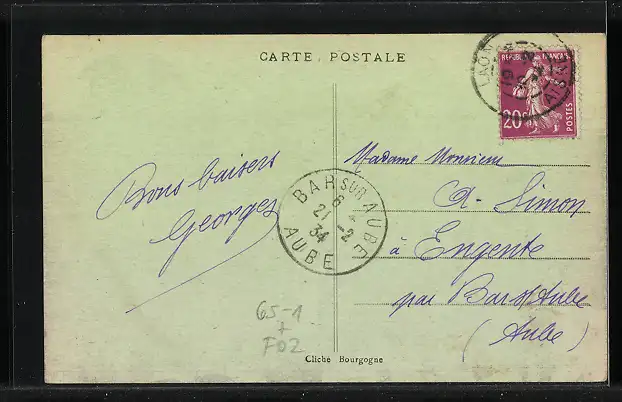 CARTE POSTALE
LAON
AISNE
REPUBLIQUE FRANÇAISE
20c
POSTES
Madame Monsieur
A. Simon
à Engente
par Bar s/ Aube
(Aube)
Bons baisers
Georges
BAR SUR AUBE
21 -2
34
AUBE
65-1
+
F02
Cliché Bourgogne